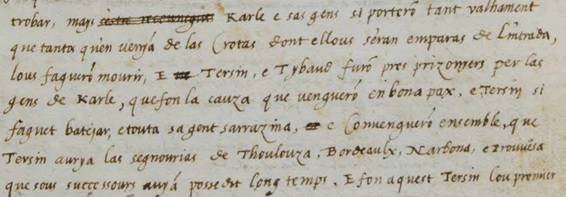 trobar, mays Karle e sas gens si porterõ tant valhament
que tanta quen venya de las Crotas dont ellous seran emparas de lintrada,
lous faguerõ mourir, E Tersin, e Tybaud furõ pres prizoniers per las
gens de Karle, quefon la cauza que venguerõ en bona pax, e Tersin si
faguet batejar, e touta sa gent sarrazina, e Convenguerõ ensemble, que
Tersin aurya las segnourias de Thoulouza, Bordeaulx, Narbona, e Prouvēsa
que sous successours auyã possedit long temps, E fon aquest Tersin lou premier